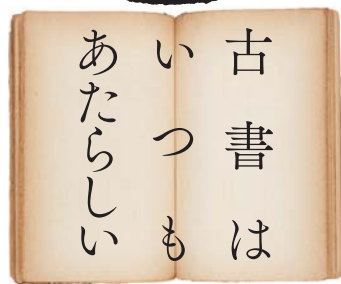 古書は
いつも
あたらしい